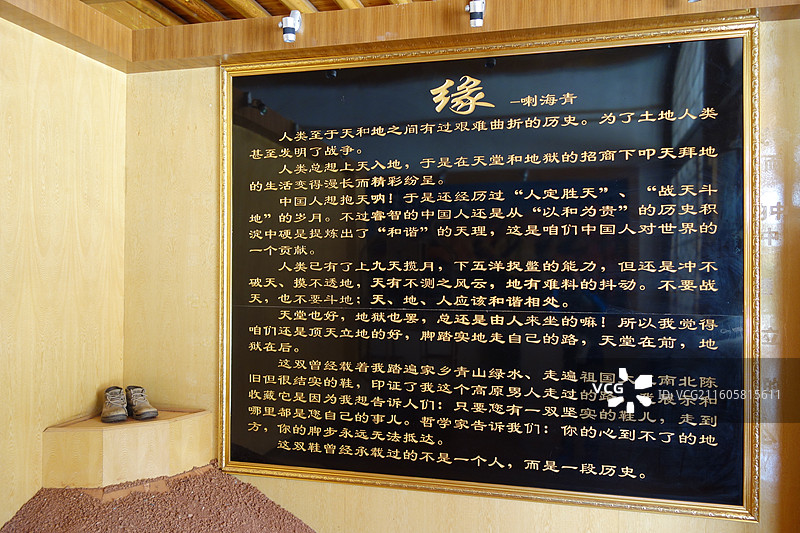 缘 -喇海青
人类至于天和地之间有过艰难曲折的历史。为了土地人类
甚至发明了战争。
人类总想上天入地，于是在天堂和地狱的招商下叩天拜地
的生活变得漫长而精彩纷呈。
中国人想抱天呐！于是还经历过“人定胜天”、“战天斗
地”的岁月。不过睿智的中国人还是从“以和为贵”的历史积
淀中硬是提炼出了“和谐”的天理，这是咱们中国人对世界的
一个贡献。
人类已有了上九天揽月，下五洋捉鳖的能力，但还是冲不
破天、摸不透地，天有不测之风云，地有难料的抖动。不要战
天，也不要斗地：天、地、人应该和谐相处。
天堂也好，地狱也罢，总还是由人来坐的嘛！所以我觉得
咱们还是顶天立地的好，脚踏实地走自己的路，天堂在前，地
狱在后。
这双曾经载着我踏遍家乡青山绿水、走遍祖国 南北陈
旧但很结实的鞋，印证了我这个高原男人走过的 和
收藏它是因为我想告诉人们：只要您有一双坚实的鞋儿，走到
哪里都是您自己的事儿。哲学家告诉我们：你的心到不了的地
方，你的脚步永远无法抵达。
这双鞋曾经承载过的不是一个人，而是一段历史。
VCG
ID:VCG211605815611
中
中
立